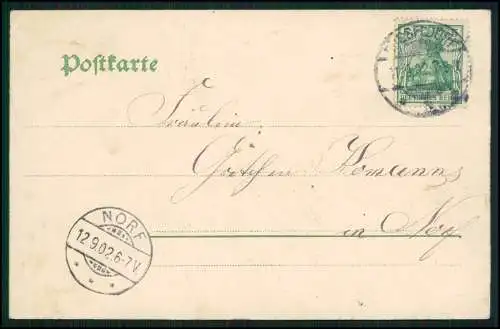 Postkarte
DÜSSELDORF
Fräulein
Gretchen Homanns
in Norf
NORF
12.9.02.6-7V.